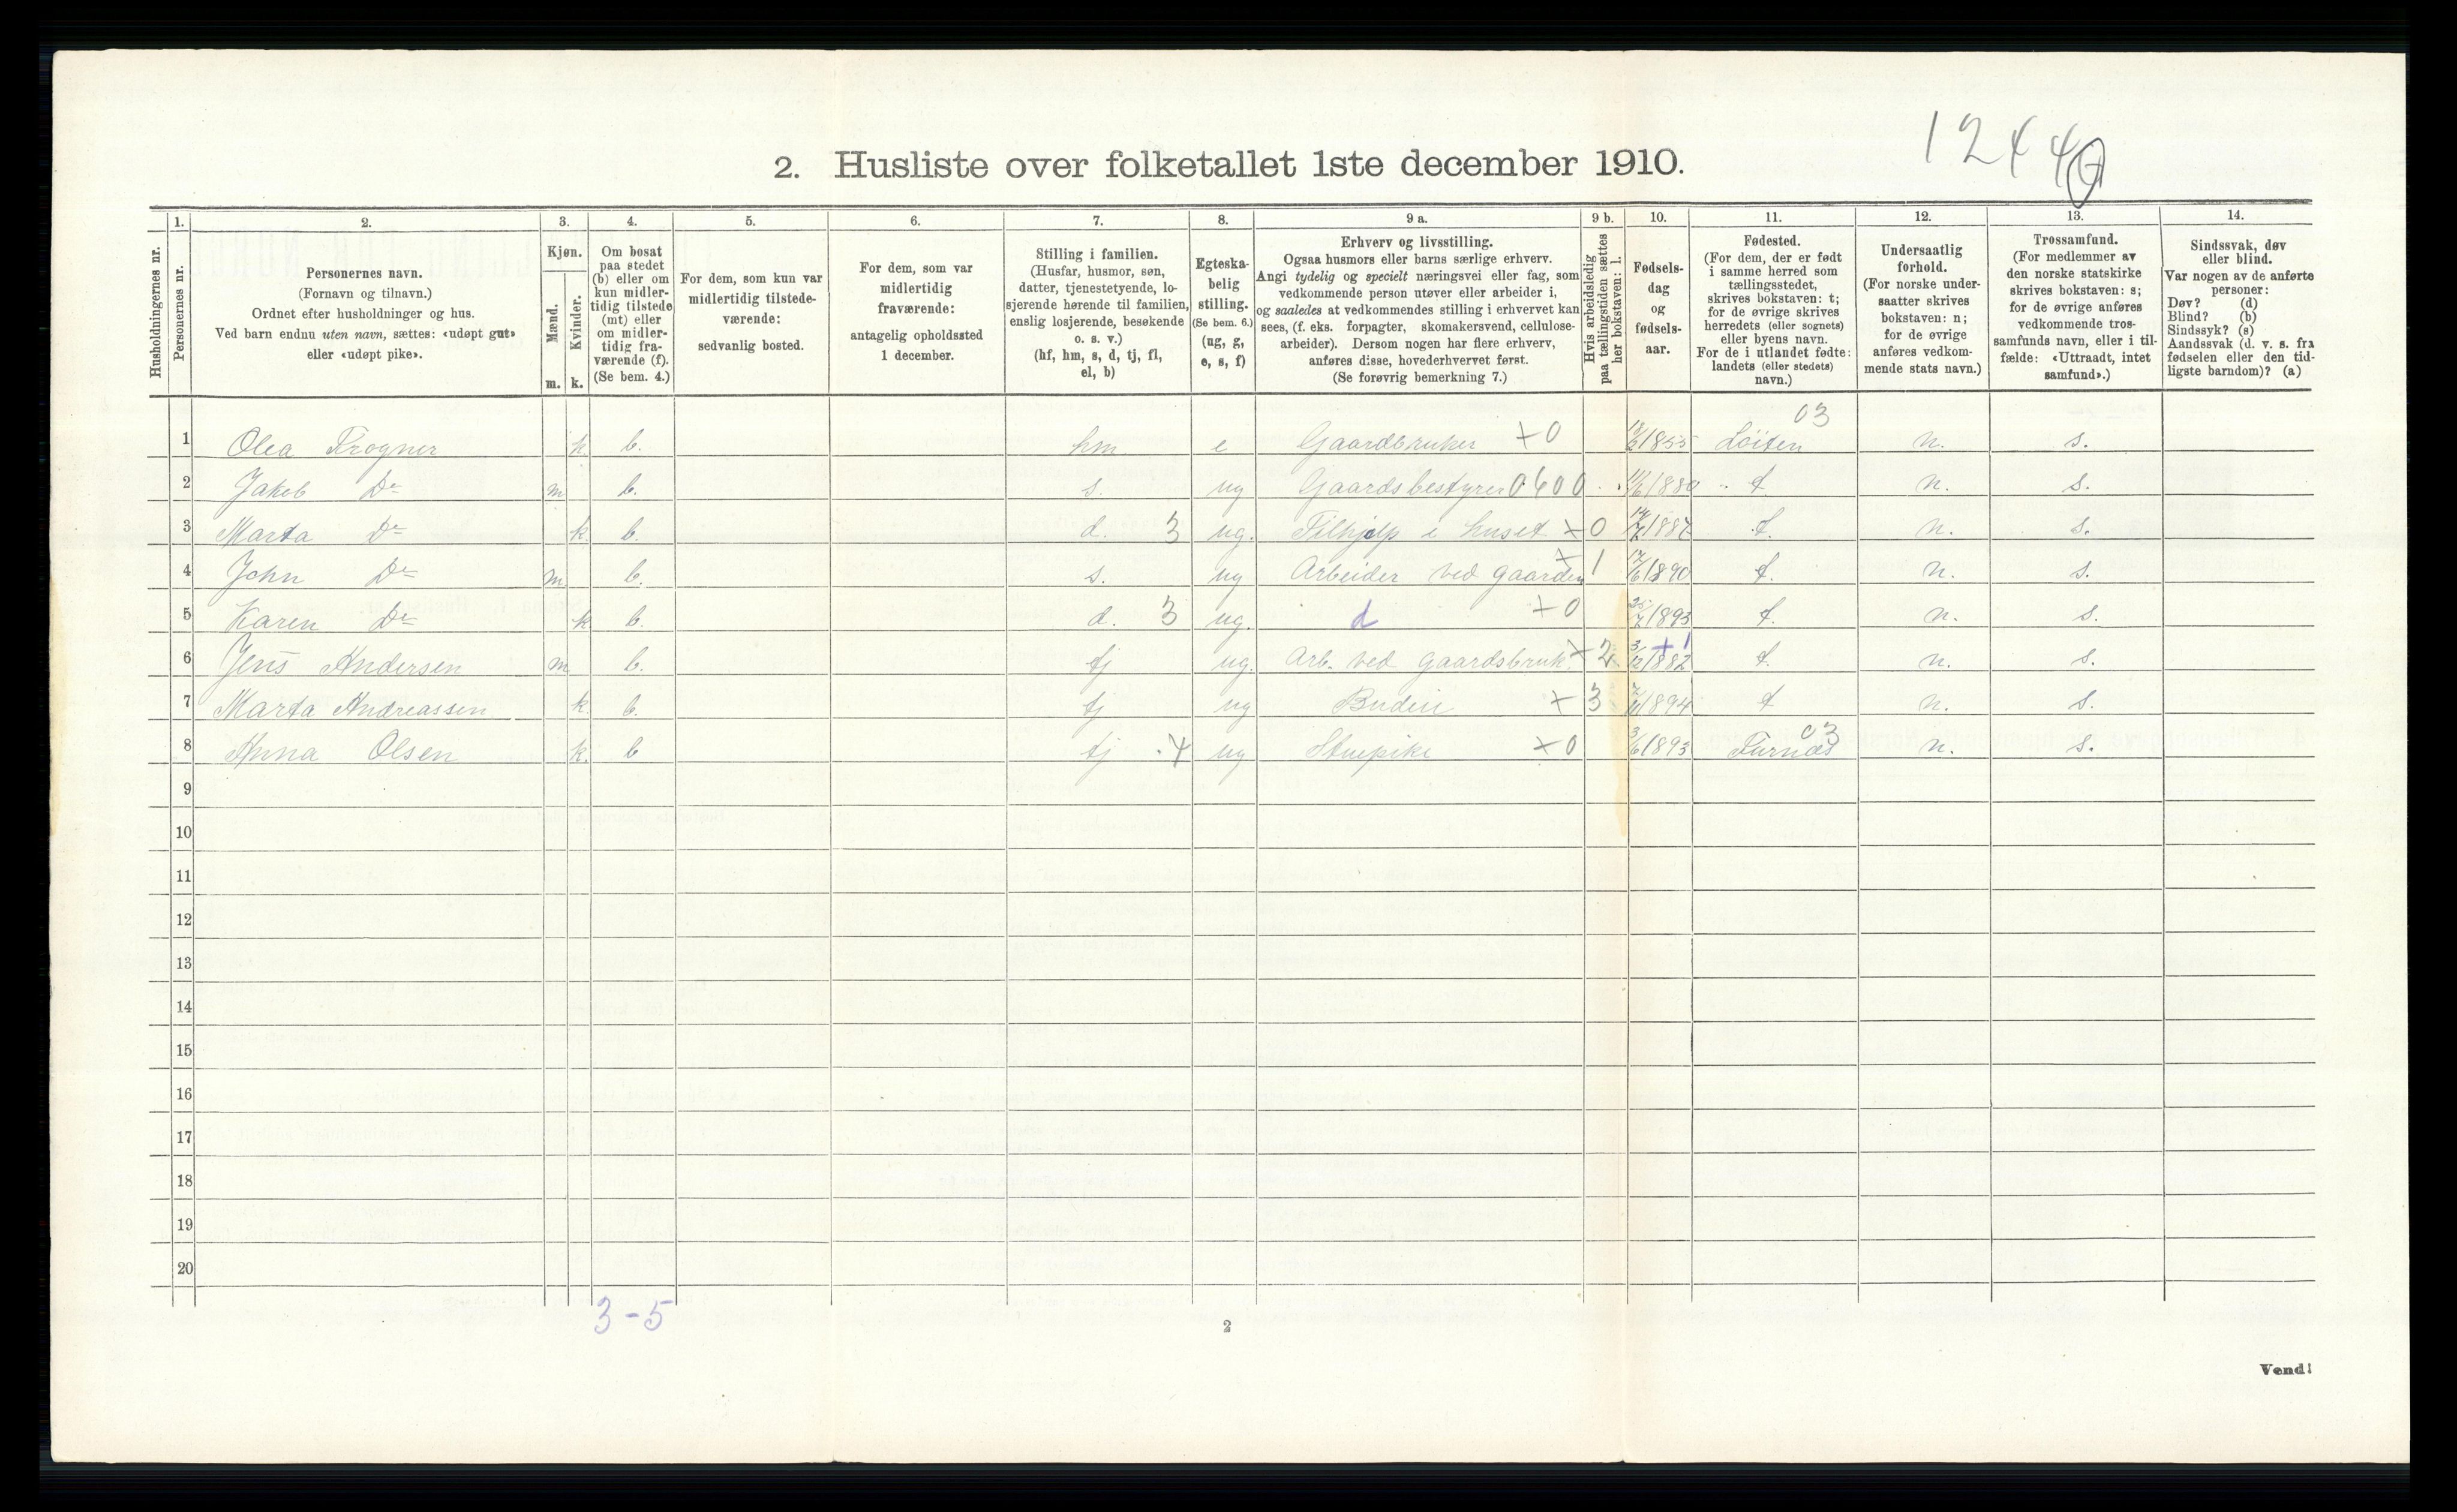 12440
2. Husliste over folketallet 1ste december 1910.
Husholdningernes nr.
1. Personernes nr.
2. Personernes navn.
(Fornavn og tilnavn.)
Ordnet efter husholdninger og hus.
Ved barn endnu uten navn, sættes: «udøpt gut»
eller «udøpt pike».
3. Kjøn.
Mænd. Kvinder.
m. k.
4. Om bosat
paa stedet
(b) eller om
kun midler-
tidig tilstede
(mt) eller
om midler-
tidig fra-
værende (f).
(Se bem. 4.)
5. For dem, som kun var
midlertidig tilstede-
værende:
sedvanlig bosted.
6. For dem, som var
midlertidig
fraværende:
antagelig opholdssted
1 december.
7. Stilling i familien.
(Husfar, husmor, søn,
datter, tjenestetyende, lo-
sjerende hørende til familien,
enslig losjerende, besøkende
o. s. v.)
(hf, hm, s, d, tj, fl,
el, b)
8. Egteska-
belig
stilling.
(Se bem. 6.)
(ug, g,
e, s, f)
9 a. Erhverv og livsstilling.
Ogsaa husmors eller barns særlige erhverv.
Angi tydelig og specielt næringsvei eller fag, som
vedkommende person utøver eller arbeider i,
og saaledes at vedkommendes stilling i erhvervet kan
sees, (f. eks. forpagter, skomakersvend, cellulose-
arbeider). Dersom nogen har flere erhverv,
anføres disse, hovederhvervet først.
(Se forøvrig bemerkning 7.)
9 b. Hvis arbeidsledig
paa tællingstiden sættes
her bokstaven: l.
10. Fødsels-
dag
og
fødsels-
aar.
11. Fødested.
(For dem, der er født
i samme herred som
tællingsstedet,
skrives bokstaven: t;
for de øvrige skrives
herredets (eller sognets)
eller byens navn.
For de i utlandet fødte:
landets (eller stedets)
navn.)
12. Undersaatlig
forhold.
(For norske under-
saatter skrives
bokstaven: n;
for de øvrige
anføres vedkom-
mende stats navn.)
13. Trossamfund.
(For medlemmer av
den norske statskirke
skrives bokstaven: s;
for de øvrige anføres
vedkommende tros-
samfunds navn, eller i til-
fælde: «Uttraadt, intet
samfund».)
14. Sindssvak, døv
eller blind.
Var nogen av de anførte
personer:
Døv? (d)
Blind? (b)
Sindssyk? (s)
Aandssvak (d. v. s. fra
fødselen eller den tid-
ligste barndom)? (a)
03
1 Olea Frogner k. b. hm e Gaardbruker +0 18/2 1855 Löiten n. s.
2 Jakob Do m b. s. ug Gaardsbestyrer 0600 /6 1880 t. n. s.
3 Marta Do k. b. d. 3 ug. Tilhjelp i huset +0 14/7 1887 t. n. s.
4 John Do m. b. s. ug Arbeider ved gaarden +1 17/6 1890 t. n. s.
5 Karen Do k. b. d. 3 ug. d +0 25/7 1893 t. n. s.
6 Jens Andersen m b. tj ug. Arb. ved gaardsbruk. +2 3/12 1882 +1 t. n. s.
7 Marta Andreassen k. b. tj ug Budeie +3 7/11 1894 t n. s.
03
8 Anna Olsen k. b tj 4 ug Stuepike +0 3/6 1893 Furnæs n. s.
9
10
11
12
13
14
15
16
17
18
19
20
3-5
2
Vend!